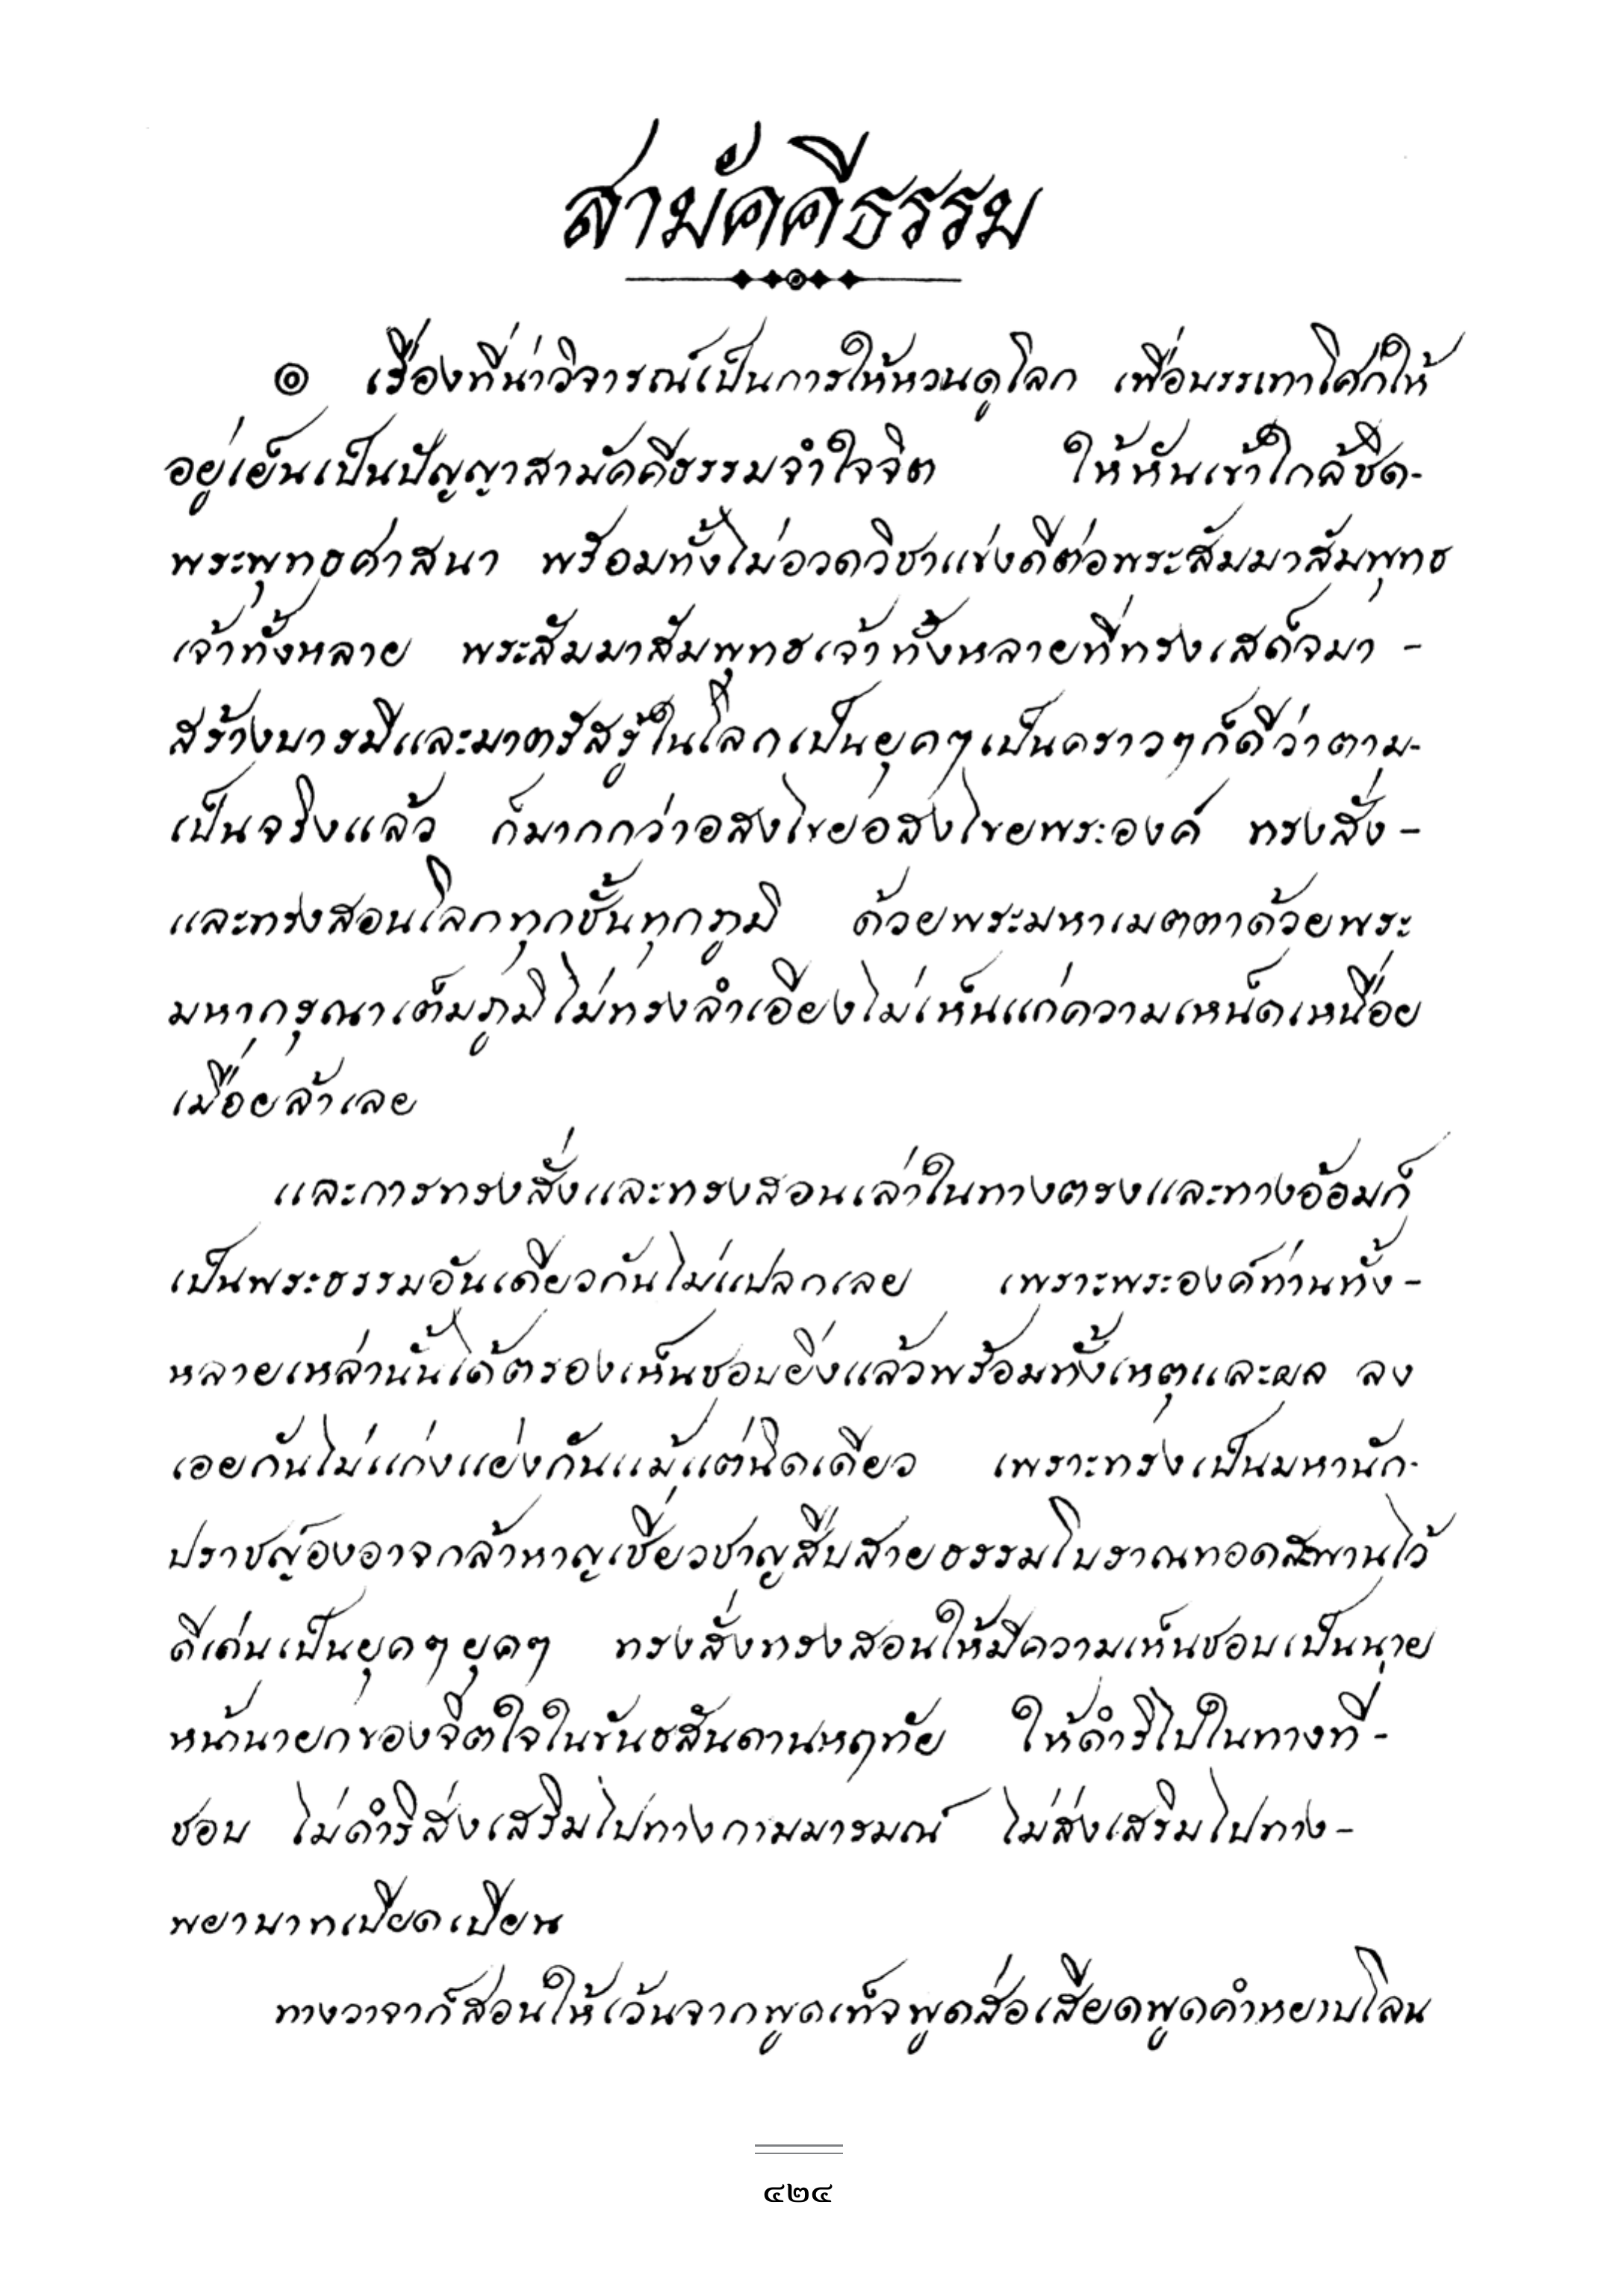 สามัคคีธรรม
๏ เรื่องที่น่าวิจารณ์เป็นการให้หวนดูโลก เพื่อบรรเทาโศกให้
อยู่เย็นเป็นปัญญาสามัคคีธรรมจำใจจิต ให้หันเข้าใกล้ชิด-
พระพุทธศาสนา พร้อมทั้งไม่อวดวิชาแข่งดีต่อพระสัมมาสัมพุทธ
เจ้าทั้งหลาย พระสัมมาสัมพุทธเจ้าทั้งหลายที่ทรงเสด็จมา -
สร้างบารมีและมาตรัสรู้ในโลกเป็นยุคๆเป็นคราวๆก็ดีว่าตาม-
เป็นจริงแล้ว ก็มากกว่าอสงไขยอสงไขยพระองค์ ทรงสั่ง -
และทรงสอนโลกทุกชั้นทุกภูมิ ด้วยพระมหาเมตตาด้วยพระ
มหากรุณาเต็มภูมิไม่ทรงลำเอียงไม่เห็นแก่ความเหน็ดเหนื่อย
เมื่อยล้าเลย
และการทรงสั่งและทรงสอนเล่าในทางตรงและทางอ้อมก็
เป็นพระธรรมอันเดียวกันไม่แปลกเลย เพราะพระองค์ท่านทั้ง -
หลายเหล่านั้นได้ตรองเห็นชอบยิ่งแล้วพร้อมทั้งเหตุและผล ลง
เอยกันไม่แก่งแย่งกันแม้แต่นิดเดียว เพราะทรงเป็นมหานัก-
ปราชญ์องอาจกล้าหาญเชี่ยวชาญสืบสายธรรมโบราณทอดสะพานไว้
ดีเด่นเป็นยุคๆยุคๆ ทรงสั่งทรงสอนให้มีความเห็นชอบเป็นนาย
หน้านายกของจิตใจในขันธสันดานหฤทัย ให้ดำริไปในทางที่ -
ชอบ ไม่ดำริส่งเสริมไปทางกามมารมณ์ ไม่ส่งเสริมไปทาง -
พยาบาทเบียดเบียน
ทางวาจาก็สอนให้เว้นจากพูดเท็จพูดส่อเสียดพูดคำหยาบโลน
๔๒๔